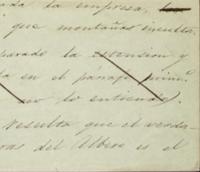 la empresa,
que montañas incultas
parado la extension y
ta en el parage
no lo entiende)
resulta que el verda-
ras del Albero es el